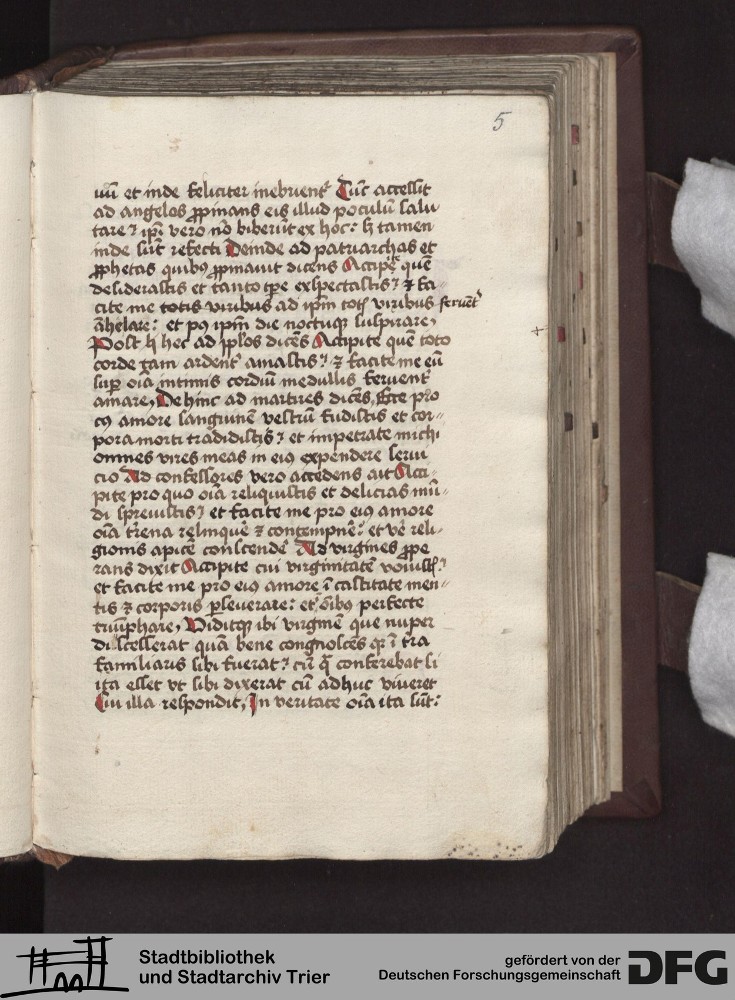 5
uū et inde feliciter inebrient᷑ Tūc accessit
ad angelos ꝓpinans eis illud poculū salu
tare ⁊ ip̄i vero nō biberūt ex hoc: sꝫ tamen
inde sūt refecti Deinde ad patriarchas et
ꝓphetas quibꝰ ꝓpinauit dicens Accipite quē
desiderastis et tanto tꝑe exspectastis ⁊ fa
cite me totis viribus ad ip̄m totis viribus feruēt᷑
āhelare: et pꝰ ip̄m die noctuqꝫ suspirare,
Post hec ad apl̄os dicēs Accipite quē toto
corde tam ardent᷑ amastis: ⁊ facite me eū
suꝑ oīa intimis cordiū medullis feruent᷑
amare, Dehinc ad martires dicēs, Ecce pro
cꝰ amore sanguinē vestrū fudistis et cor
pora morti tradidistis: et impetrate michi
omnes vires meas in eiꝰ expendere serui
cio Ad confessores vero accedens ait Acci
pite pro quo oīa reliquistis et delicias mū
di spreuistis: et facite me pro eiꝰ amore
oīa t̄rena relinquē̄ ⁊ contempnē̄: et vē̄ reli
gionis apicē conscendē̄ Ad virgines ꝓpe
rans dixit Accipite cui virginitatē vouistis:
et facite me pro eiꝰ amore ī castitate men
tis ⁊ corporis ꝑseuerare: et ōibꝰ perfecte
triūphare, Viditqꝫ ibi virginē que nuper
discesserat quā bene congnoscēs qꝛ ī vita
familiaris sibi fuerat: cū q̄ conferebat si
ita esset vt sibi dixerat cū adhuc viueret
Cui illa respondit, In veritate oīa ita sūt:
+
Stadtbibliothek
und Stadtarchiv Trier
gefördert von der
Deutschen Forschungsgemeinschaft
DFG